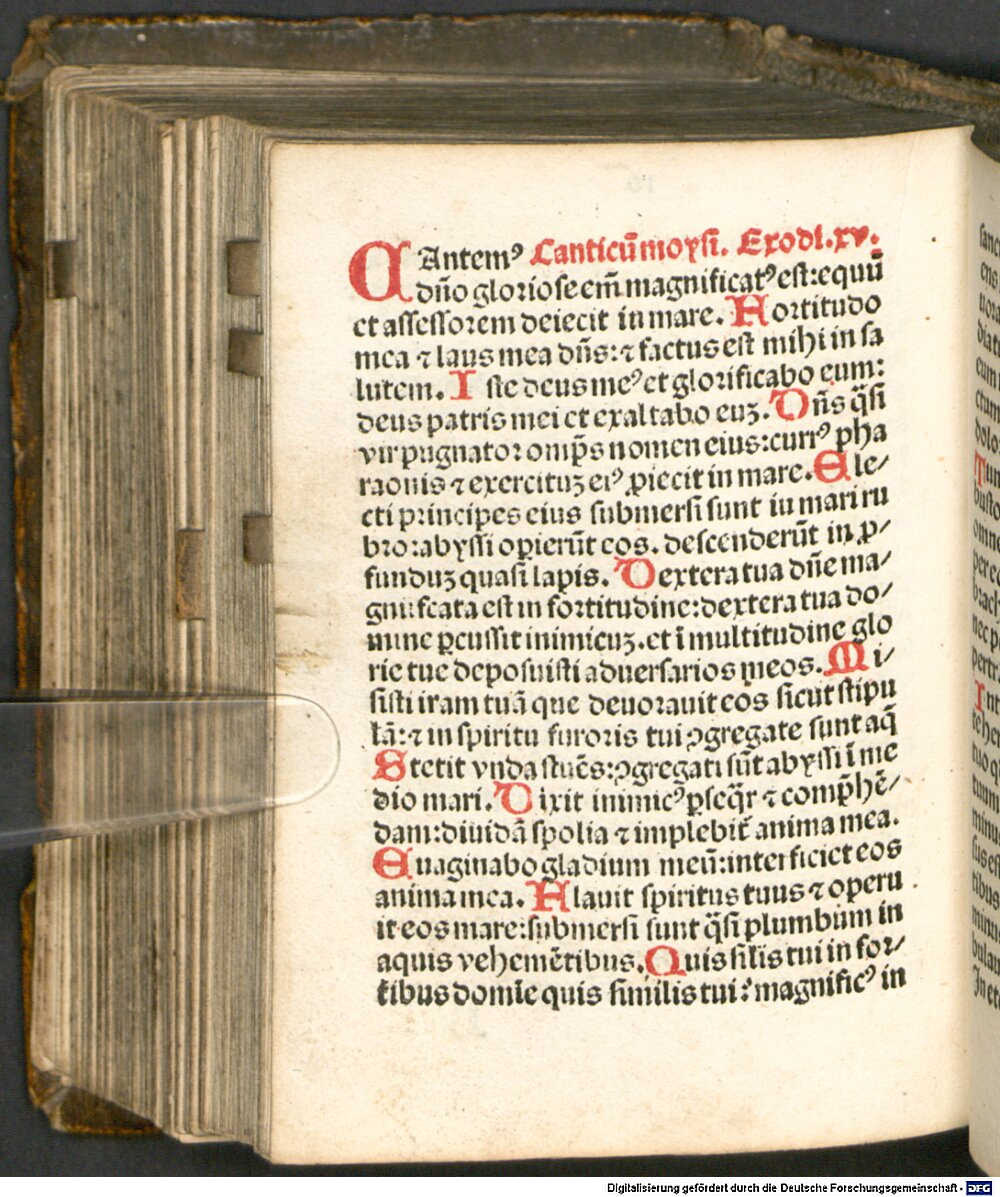 CAntemꝰ Canticū moysi. Exodi.xv.
dn̄o gloriose em̄ magnificatꝰ est: equū
et assessorem deiecit in mare. Fortitudo
mea ⁊ laus mea dn̄s: ⁊ factus est mihi in sa
lutem. Iste deus meꝰ et glorificabo eum:
deus patris mei et exaltabo euꝫ. Dn̄s q̄si
vir pugnator omp̄s nomen eius: currꝰ pha
raonis ⁊ exercituꝫ eiꝰ ꝓiecit in mare. Ele/
cti principes eius submersi sunt iu mari ru
bro: abyssi operierūt eos. descenderūt in ꝓ/
funduꝫ quasi lapis. Dextera tua dn̄e ma/
gnifcata est in fortitudine: dextera tua do/
mine ꝑcussit inimicuꝫ. et ī multitudine glo
rie tue deposuisti aduersarios meos. Mi/
sisti iram tuā que deuorauit eos sicut stipu
lā: ⁊ in spiritu furoris tui ꝯgregate sunt aq̄
Stetit vnda fluēs: ꝯgregati sūt abyssi ī me
dio mari. Dixit inimicꝰ ꝑseq̄r ⁊ comp̄hē/
dam: diuidā spolia ⁊ implebit̄ anima mea.
Euaginabo gladium meū: interficiet eos
anima mea. Flauit spiritus tuus ⁊ operu
it eos mare: submersi sunt q̄si plumbum in
aquis vehemētibus. Quis sil̄is tui in for/
tibus domīe quis similis tui: magnificꝰ in
sanc
ens
Digitalisierung gefördert durch die Deutsche Forschungsgemeinschaft - DFG